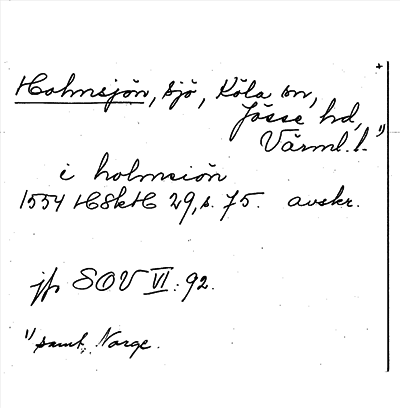 Holmsjön, sjö, Köla sn,
Jösse hd,
Värml. l. 1)
i holmsiön
1554 HSkH 29, s. 75. avskr.
jfr SOV VI: 92.
1) samt Norge.